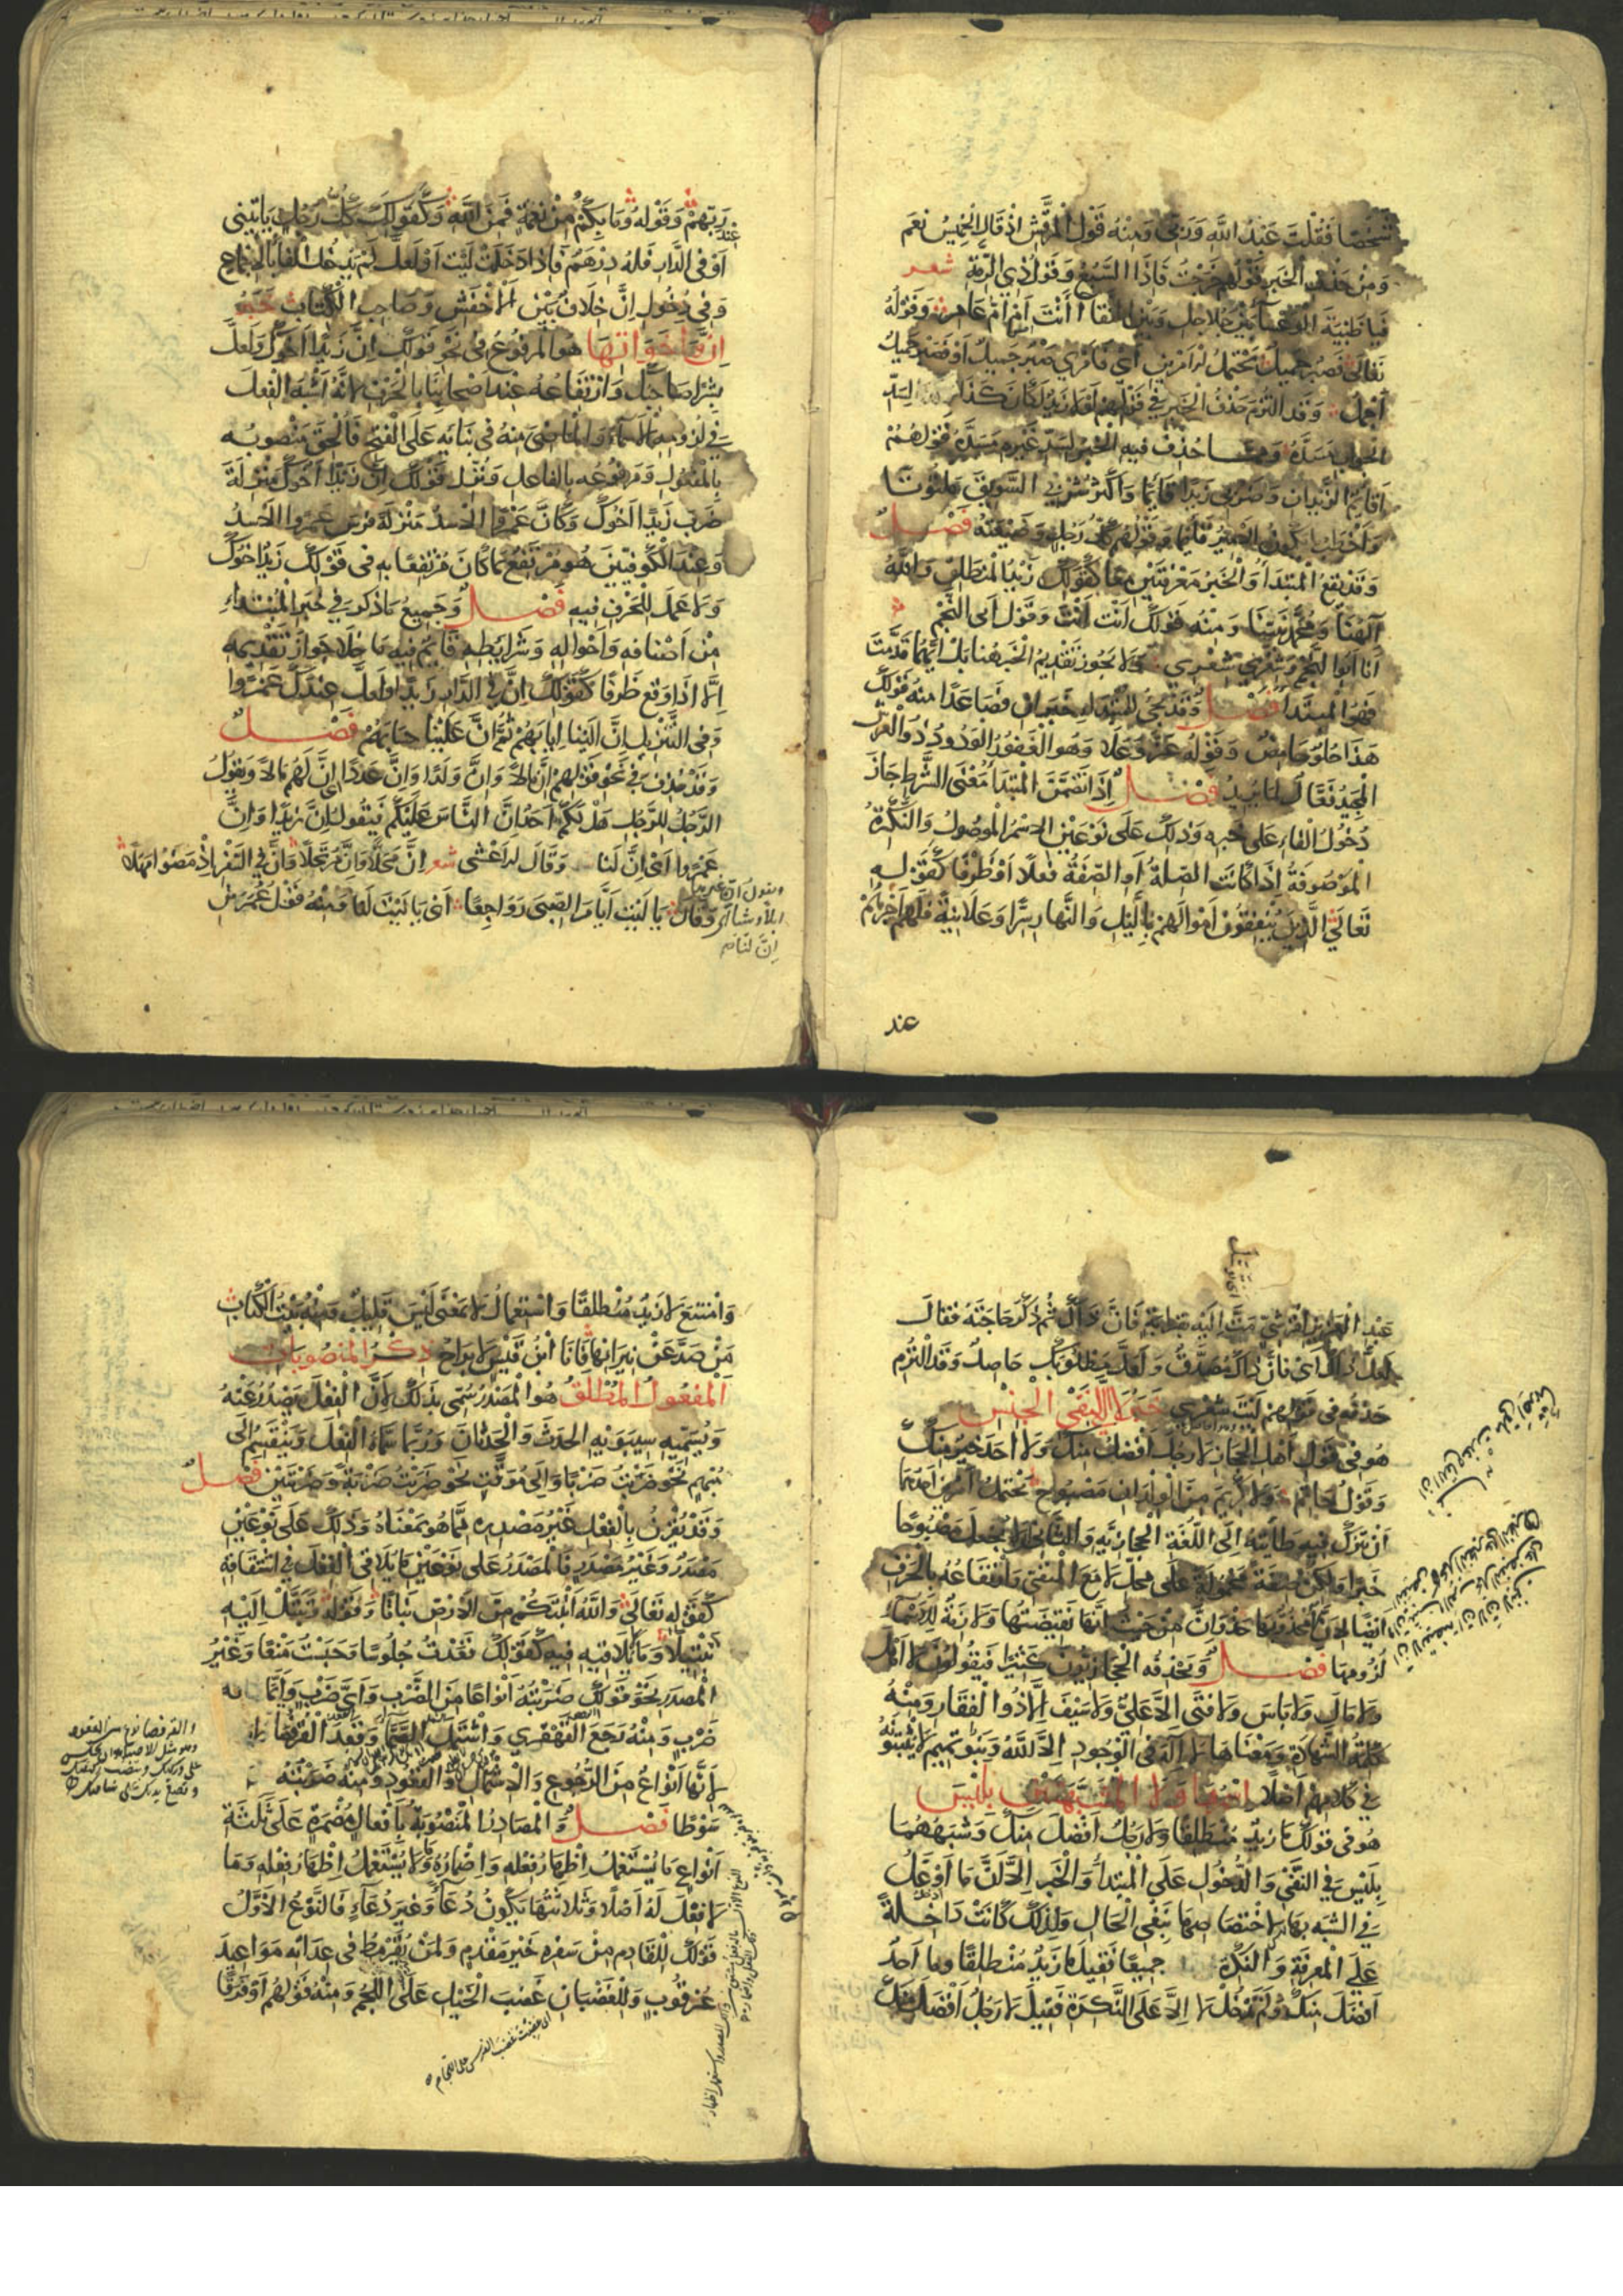 شَخْصًا فَقُلْتَ عَبْدُ اللّٰهِ وَرَبِّي وَمِنْهُ قَوْلُ الْمُرَقِّشِ اِذْ قَالَ الْخَمِيسُ نَعَمْ
وَمِنْ حَذْفِ الْخَبَرِ قَوْلُهُمْ خَرَجْتُ فَاِذَا السَّبُعُ وَقَوْلُ ذِي الرُّمَّةِ شعر
فَيَا ظَبْيَةَ الْوَعْسَاءِ بَيْنَ جُلَاجِلٍ وَبَيْنَ النَّقَا اَاَنْتِ اَمْ اُمُّ سَالِمِ وَقَوْلُهُ
تَعَالَى فَصَبْرٌ جَمِيلٌ يَحْتَمِلُ الْاَمْرَيْنِ اَيْ فَاَمْرِي صَبْرٌ جَمِيلٌ اَوْ فَصَبْرٌ جَمِيلٌ
اَجْمَلُ وَقَدِ الْتُزِمَ حَذْفُ الْخَبَرِ فِي قَوْلِهِمْ لَوْلَا زَيْدٌ لَكَانَ كَذَا لِسَدِّ
الْجَوَابِ مَسَدَّهُ وَمِمَّا حُذِفَ فِيهِ الْخَبَرُ لِسَدِّ غَيْرِهِ مَسَدَّهُ قَوْلُهُمْ
اَقَائِمٌ الزَّيْدَانِ وَضَرْبِي زَيْدًا قَائِمًا وَاَكْثَرُ شُرْبِي السَّوِيقَ مَلْتُوتًا
وَاَخْطَبُ مَا يَكُونُ الْاَمِيرُ قَائِمًا وَقَوْلُهُمْ كُلُّ رَجُلٍ وَضَيْعَتُهُ فَصْلٌ
وَقَدْ يَقَعُ الْمُبْتَدَأُ وَالْخَبَرُ مَعْرِفَتَيْنِ مَعًا كَقَوْلِكَ زَيْدٌ الْمُنْطَلِقُ وَاللّٰهُ
اِلٰهُنَا وَمُحَمَّدٌ نَبِيُّنَا وَمِنْهُ قَوْلُكَ اَنْتَ اَنْتَ وَقَوْلُ اَبِي النَّجْمِ
اَنَا اَبُو النَّجْمِ وَشِعْرِي شِعْرِي وَلَا يَجُوزُ تَقْدِيمُ الْخَبَرِ هُنَا بَلْ اَيُّهُمَا قَدَّمْتَ
فَهُوَ الْمُبْتَدَأُ فَصْلٌ وَقَدْ يَجِيءُ لِلْمُبْتَدَاءِ خَبَرَانِ فَصَاعِدًا مِنْهُ قَوْلُكَ
هَذَا حُلْوٌ حَامِضٌ وَقَوْلُهُ عَزَّ وَعَلَا وَهُوَ الْغَفُورُ الْوَدُودُ ذُو الْعَرْشِ
الْمَجِيدُ فَعَّالٌ لِمَا يُرِيدُ فَصْلٌ اِذَا تَضَمَّنَ الْمُبْتَدَأُ مَعْنَى الشَّرْطِ جَازَ
دُخُولُ الْفَاءِ عَلَى خَبَرِهِ وَذٰلِكَ عَلَى نَوْعَيْنِ الِاسْمُ الْمَوْصُولُ وَالنَّكِرَةُ
الْمَوْصُوفَةُ اِذَا كَانَتِ الصِّلَةُ اَوِ الصِّفَةُ فِعْلًا اَوْ ظَرْفًا كَقَوْلِهِ
تَعَالَى الَّذِينَ يُنْفِقُونَ اَمْوَالَهُمْ بِاللَّيْلِ وَالنَّهَارِ سِرًّا وَعَلَانِيَةً فَلَهُمْ اَجْرُهُمْ
عند
رَبِّهِمْ وَقَوْلِهِ وَمَا بِكُمْ مِنْ نِعْمَةٍ فَمِنَ اللّٰهِ وَكَقَوْلِكَ كُلُّ رَجُلٍ يَاْتِينِي
عند
اَوْ فِي الدَّارِ فَلَهُ دِرْهَمٌ فَاِذَا دَخَلَتْ لَيْتَ اَوْ لَعَلَّ لَمْ يَدْخُلِ الْفَاءُ بِالْاِجْمَاعِ
وَفِي دُخُولِ اِنَّ خِلَافٌ بَيْنَ الْاَخْفَشِ وَصَاحِبِ الْكِتَابِ خَبَرُ
اِنَّ وَاَخَوَاتِهَا هُوَ الْمَرْفُوعُ فِي نَحْوِ قَوْلِكَ اِنَّ زَيْدًا اَخُوكَ وَلَعَلَّ
بِشْرًا صَاحِبُكَ وَارْتِفَاعُهُ عِنْدَ اَصْحَابِنَا بِالْحَرْفِ لِاَنَّهُ اَشْبَهَ الْفِعْلَ
فِي لُزُومِهِ الْاَسْمَاءَ وَالْمَاضِيَ مِنْهُ فِي بِنَائِهِ عَلَى الْفَتْحِ فَاُلْحِقَ مَنْصُوبُهُ
بِالْمَفْعُولِ وَمَرْفُوعُهُ بِالْفَاعِلِ وَنُزِّلَ قَوْلُكَ اِنَّ زَيْدًا اَخُوكَ مَنْزِلَةَ
ضَرَبَ زَيْدًا اَخُوكَ وَكَاَنَّ عَمْرًوا الْاَسَدُ مَنْزِلَةَ فَرَسَ عَمْرًوا الْاَسَدُ
وَعِنْدَ الْكُوفِيِّينَ هُوَ مُرْتَفِعٌ بِمَا كَانَ مُرْتَفِعًا بِهِ فِي قَوْلِكَ زَيْدٌ اَخُوكَ
وَلَا عَمَلَ لِلْحَرْفِ فِيهِ فَصْلٌ وَجَمِيعُ مَا ذُكِرَ فِي خَبَرِ الْمُبْتَدَاءِ
مِنْ اَصْنَافِهِ وَاَحْوَالِهِ وَشَرَائِطِهِ قَائِمٌ فِيهِ مَا خَلَا جَوَازَ تَقْدِيمِهِ
اِلَّا اِذَا وَقَعَ ظَرْفًا كَقَوْلِكَ اِنَّ فِي الدَّارِ زَيْدًا وَلَعَلَّ عِنْدَكَ عَمْرًوا
وَفِي التَّنْزِيلِ اِنَّ اِلَيْنَا اِيَابَهُمْ ثُمَّ اِنَّ عَلَيْنَا حِسَابَهُمْ فَصْلٌ
وَقَدْ حُذِفَ فِي نَحْوِ قَوْلِهِمْ اِنَّ مَالًا وَاِنَّ وَلَدًا وَاِنَّ عَدَدًا اَيْ اِنَّ لَهُمْ مَالًا وَيَقُولُ
الرَّجُلُ لِلرَّجُلِ هَلْ لَكُمْ اَحَدٌ اِنَّ النَّاسَ عَلَيْكُمْ فَيَقُولُ اِنَّ زَيْدًا وَاِنَّ
عَمْرًوا اَيْ اِنَّ لَنَا وَقَالَ الْاَعْشَى شعر اِنَّ مَحَلًّا وَاِنَّ مُرْتَحَلًا وَاِنَّ فِي السَّفْرِ اِذْ مَضَوْا مَهَلًا
ويقول ان غيرها
ابلا وشاء
اِنَّ لَنَا
وَقَالَ يَا لَيْتَ اَيَّامَ الصِّبَى رَوَاجِعًا اَيْ يَا لَيْتَ لَنَا وَمِنْهُ قَوْلُ عُمَرَ بْنِ
عَبْدِ الْعَزِيزِ لِقُرَشِيٍّ مَتَّ اِلَيْهِ بِقَرَابَةٍ فَاِنَّ ذَاكَ ثُمَّ ذَكَرَ حَاجَتَهُ فَقَالَ
لَعَلَّ ذَاكَ اَيْ فَاِنَّ ذَاكَ مُصَدَّقٌ وَلَعَلَّ مَطْلُوبَكَ حَاصِلٌ وَقَدِ الْتُزِمَ
حَذْفُهُ فِي قَوْلِهِمْ لَيْتَ شِعْرِي خَبَرُ لَا الَّتِي لِنَفْيِ الْجِنْسِ
هُوَ فِي قَوْلِ اَهْلِ الْحِجَازِ لَا رَجُلَ اَفْضَلُ مِنْكَ وَلَا اَحَدَ خَيْرٌ مِنْكَ
وَقَوْلُ حَاتِمٍ وَلَا كَرِيمَ مِنَ الْوِلْدَانِ مَصْبُوحُ يَحْتَمِلُ اَمْرَيْنِ اَحَدُهُمَا
اَنْ يَتْرُكَ فِيهِ طَائِيَّتَهُ اِلَى اللُّغَةِ الْحِجَازِيَّةِ وَالثَّانِي اَنْ لَا يَجْعَلَ مَصْبُوحًا
خَبَرًا وَلٰكِنْ صِفَةً مَحْمُولَةً عَلَى مَحَلِّ لَا مَعَ الْمَنْفِيِّ وَارْتِفَاعُهُ بِالْحَرْفِ
اَيْضًا لِاَنَّ لَا مَحْذُوٌّ بِهَا حَذْوَ اِنَّ مِنْ حَيْثُ اَنَّهَا نَقِيضَتُهَا وَلَازِمَةٌ لِلْاَسْمَاءِ
لُزُومَهَا فَصْلٌ وَيَحْذِفُهُ الْحِجَازِيُّونَ كَثِيرًا فَيَقُولُونَ لَا اَهْلَ
وَلَا مَالَ وَلَا بَاسَ وَلَا فَتَى اِلَّا عَلِيٌّ وَلَا سَيْفَ اِلَّا ذُو الْفَقَارِ وَمِنْهُ
كَلِمَةُ الشَّهَادَةِ وَمَعْنَاهَا لَا اِلٰهَ فِي الْوُجُودِ اِلَّا اللّٰهُ وَبَنُو تَمِيمٍ لَا يُثْبِتُونَهُ
فِي كَلَامِهِمْ اَصْلًا اِسْمُ مَا وَلَا الْمُشَبَّهَتَيْنِ بِلَيْسَ
هُوَ فِي قَوْلِكَ مَا زَيْدٌ مُنْطَلِقًا وَلَا رَجُلٌ اَفْضَلَ مِنْكَ وَشَبَهُهُمَا
بِلَيْسَ فِي النَّفْيِ وَالدُّخُولِ عَلَى الْمُبْتَدَأِ وَالْخَبَرِ اِلَّا اَنَّ مَا اَوْغَلُ
فِي الشَّبَهِ بِهَا لِاخْتِصَاصِهَا بِنَفْيِ الْحَالِ وَلِذٰلِكَ كَانَتْ دَاخِلَةً
عَلَى الْمَعْرِفَةِ وَالنَّكِرَةِ جَمِيعًا فَقِيلَ مَا زَيْدٌ مُنْطَلِقًا وَمَا اَحَدٌ
اَفْضَلَ مِنْكَ وَلَمْ تَدْخُلْ لَا اِلَّا عَلَى النَّكِرَةِ فَقِيلَ لَا رَجُلٌ اَفْضَلَ مِنْكَ
وَامْتَنَعَ لَا زَيْدٌ مُنْطَلِقًا وَاسْتِعْمَالُ لَا بِمَعْنَى لَيْسَ قَلِيلٌ وَمِنْهُ بَيْتُ الْكِتَابِ
مَنْ صَدَّ عَنْ نِيرَانِهَا فَاَنَا ابْنُ قَيْسٍ لَا بَرَاحُ ذِكْرُ الْمَنْصُوبَاتِ
اَلْمَفْعُولُ الْمُطْلَقُ هُوَ الْمَصْدَرُ سُمِّيَ بِذٰلِكَ لِاَنَّ الْفِعْلَ يَصْدُرُ عَنْهُ
وَيُسَمِّيهِ سِيبَوَيْهِ الْحَدَثَ وَالْحَدَثَانَ وَرُبَّمَا سَمَّاهُ الْفِعْلَ وَيَنْقَسِمُ اِلَى
مُبْهَمٍ نَحْوُ ضَرَبْتُ ضَرْبًا وَاِلَى مُوَقَّتٍ نَحْوُ ضَرَبْتُ ضَرْبَةً وَضَرْبَتَيْنِ فَصْلٌ
وَقَدْ يُقْرَنُ بِالْفِعْلِ غَيْرُ مَصْدَرِهِ مِمَّا هُوَ بِمَعْنَاهُ وَذٰلِكَ عَلَى نَوْعَيْنِ
مَصْدَرٌ وَغَيْرُ مَصْدَرٍ فَالْمَصْدَرُ عَلَى نَوْعَيْنِ مَا يُلَاقِي الْفِعْلَ فِي اشْتِقَاقِهِ
كَقَوْلِهِ تَعَالَى وَاللّٰهُ اَنْبَتَكُمْ مِنَ الْاَرْضِ نَبَاتًا وَقَوْلِهِ وَتَبَتَّلْ اِلَيْهِ
تَبْتِيلًا وَمَا لَا يُلَاقِيهِ فِيهِ كَقَوْلِكَ قَعَدْتُ جُلُوسًا وَحَبَسْتُ مَنْعًا وَغَيْرُ
الْمَصْدَرِ نَحْوُ قَوْلِكَ ضَرَبْتُهُ اَنْوَاعًا مِنَ الضَّرْبِ وَاَيَّ ضَرْبٍ وَاَيَّمَا
ضَرْبٍ وَمِنْهُ رَجَعَ الْقَهْقَرَى وَاشْتَمَلَ الصَّمَّاءَ وَقَعَدَ الْقُرْفُصَاءَ
لِاَنَّهَا اَنْوَاعٌ مِنَ الرُّجُوعِ وَالِاشْتِمَالِ وَالْقُعُودِ وَمِنْهُ ضَرَبْتُهُ
سَوْطًا فَصْلٌ وَالْمَصَادِرُ الْمَنْصُوبَةُ بِاَفْعَالٍ مُضْمَرَةٍ عَلَى ثَلٰثَةِ
اَنْوَاعٍ مَا يُسْتَعْمَلُ اِظْهَارُ فِعْلِهِ وَاِضْمَارُهُ وَمَا لَا يُسْتَعْمَلُ اِظْهَارُ فِعْلِهِ وَمَا
لَا فِعْلَ لَهُ اَصْلًا وَثَلَاثَتُهَا يَكُونُ دُعَاءً وَغَيْرَ دُعَاءٍ فَالنَّوْعُ الْاَوَّلُ
قَوْلُكَ لِلْقَادِمِ مِنْ سَفَرِهِ خَيْرَ مَقْدَمٍ وَلِمَنْ يُقَرْمِطُ فِي عِدَاتِهِ مَوَاعِيدَ
عُرْقُوبٍ وَلِلْغَضْبَانِ غَضَبَ الْخَيْلِ عَلَى اللُّجُمِ وَمِنْهُ قَوْلُهُمْ اَوْ فَرَقًا
اى غضبت غضب الفرس على اللجام
والقرفصا نوع من القعود